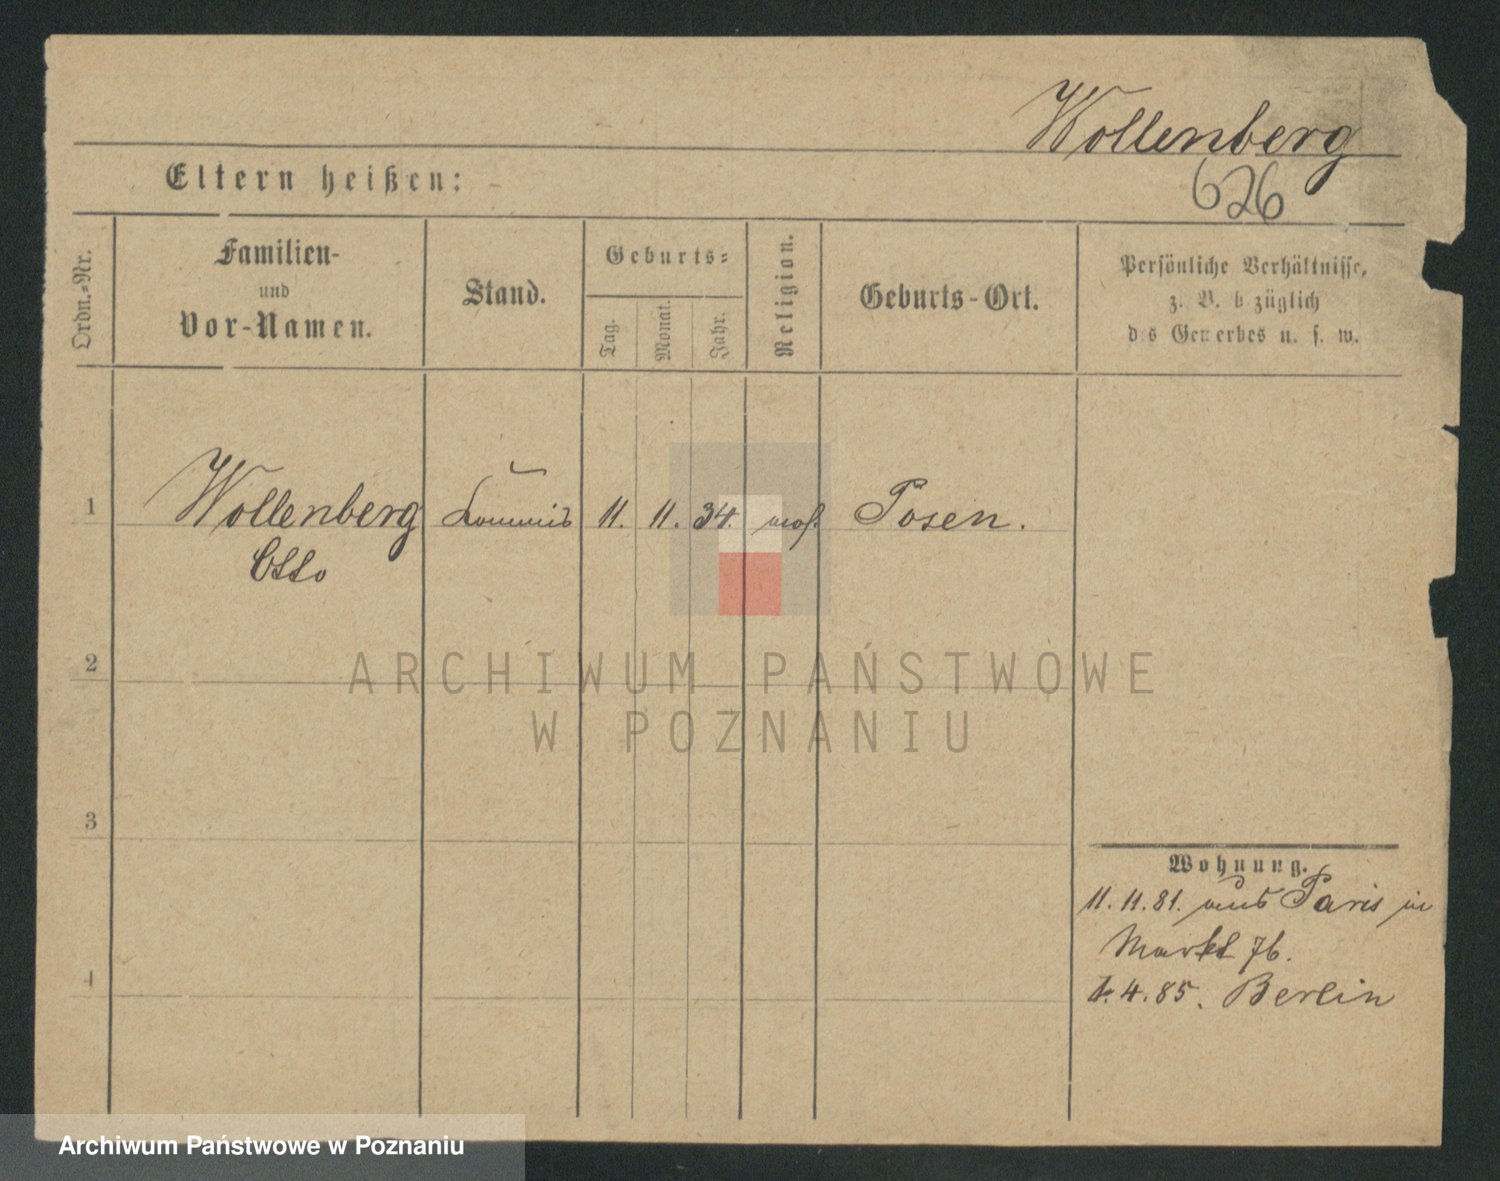 Wollenberg
Eltern heißen:
626
Ordn.-Nr.
Familien-
und
Vor-Namen.
Stand.
Geburts-
Tag.
Monat.
Jahr.
Religion.
Geburts-Ort.
Persönliche Verhältnisse,
z. B. bezüglich
des Gewerbes u. s. w.
1 Wollenberg Commis 11. 11. 34. mos. Posen.
Otto
2
3
4
Wohnung.
11. 11. 81. aus Paris in
Markt 76.
1. 4. 85. Berlin
ARCHIWUM PAŃSTWOWE
W POZNANIU
Archiwum Państwowe w Poznaniu